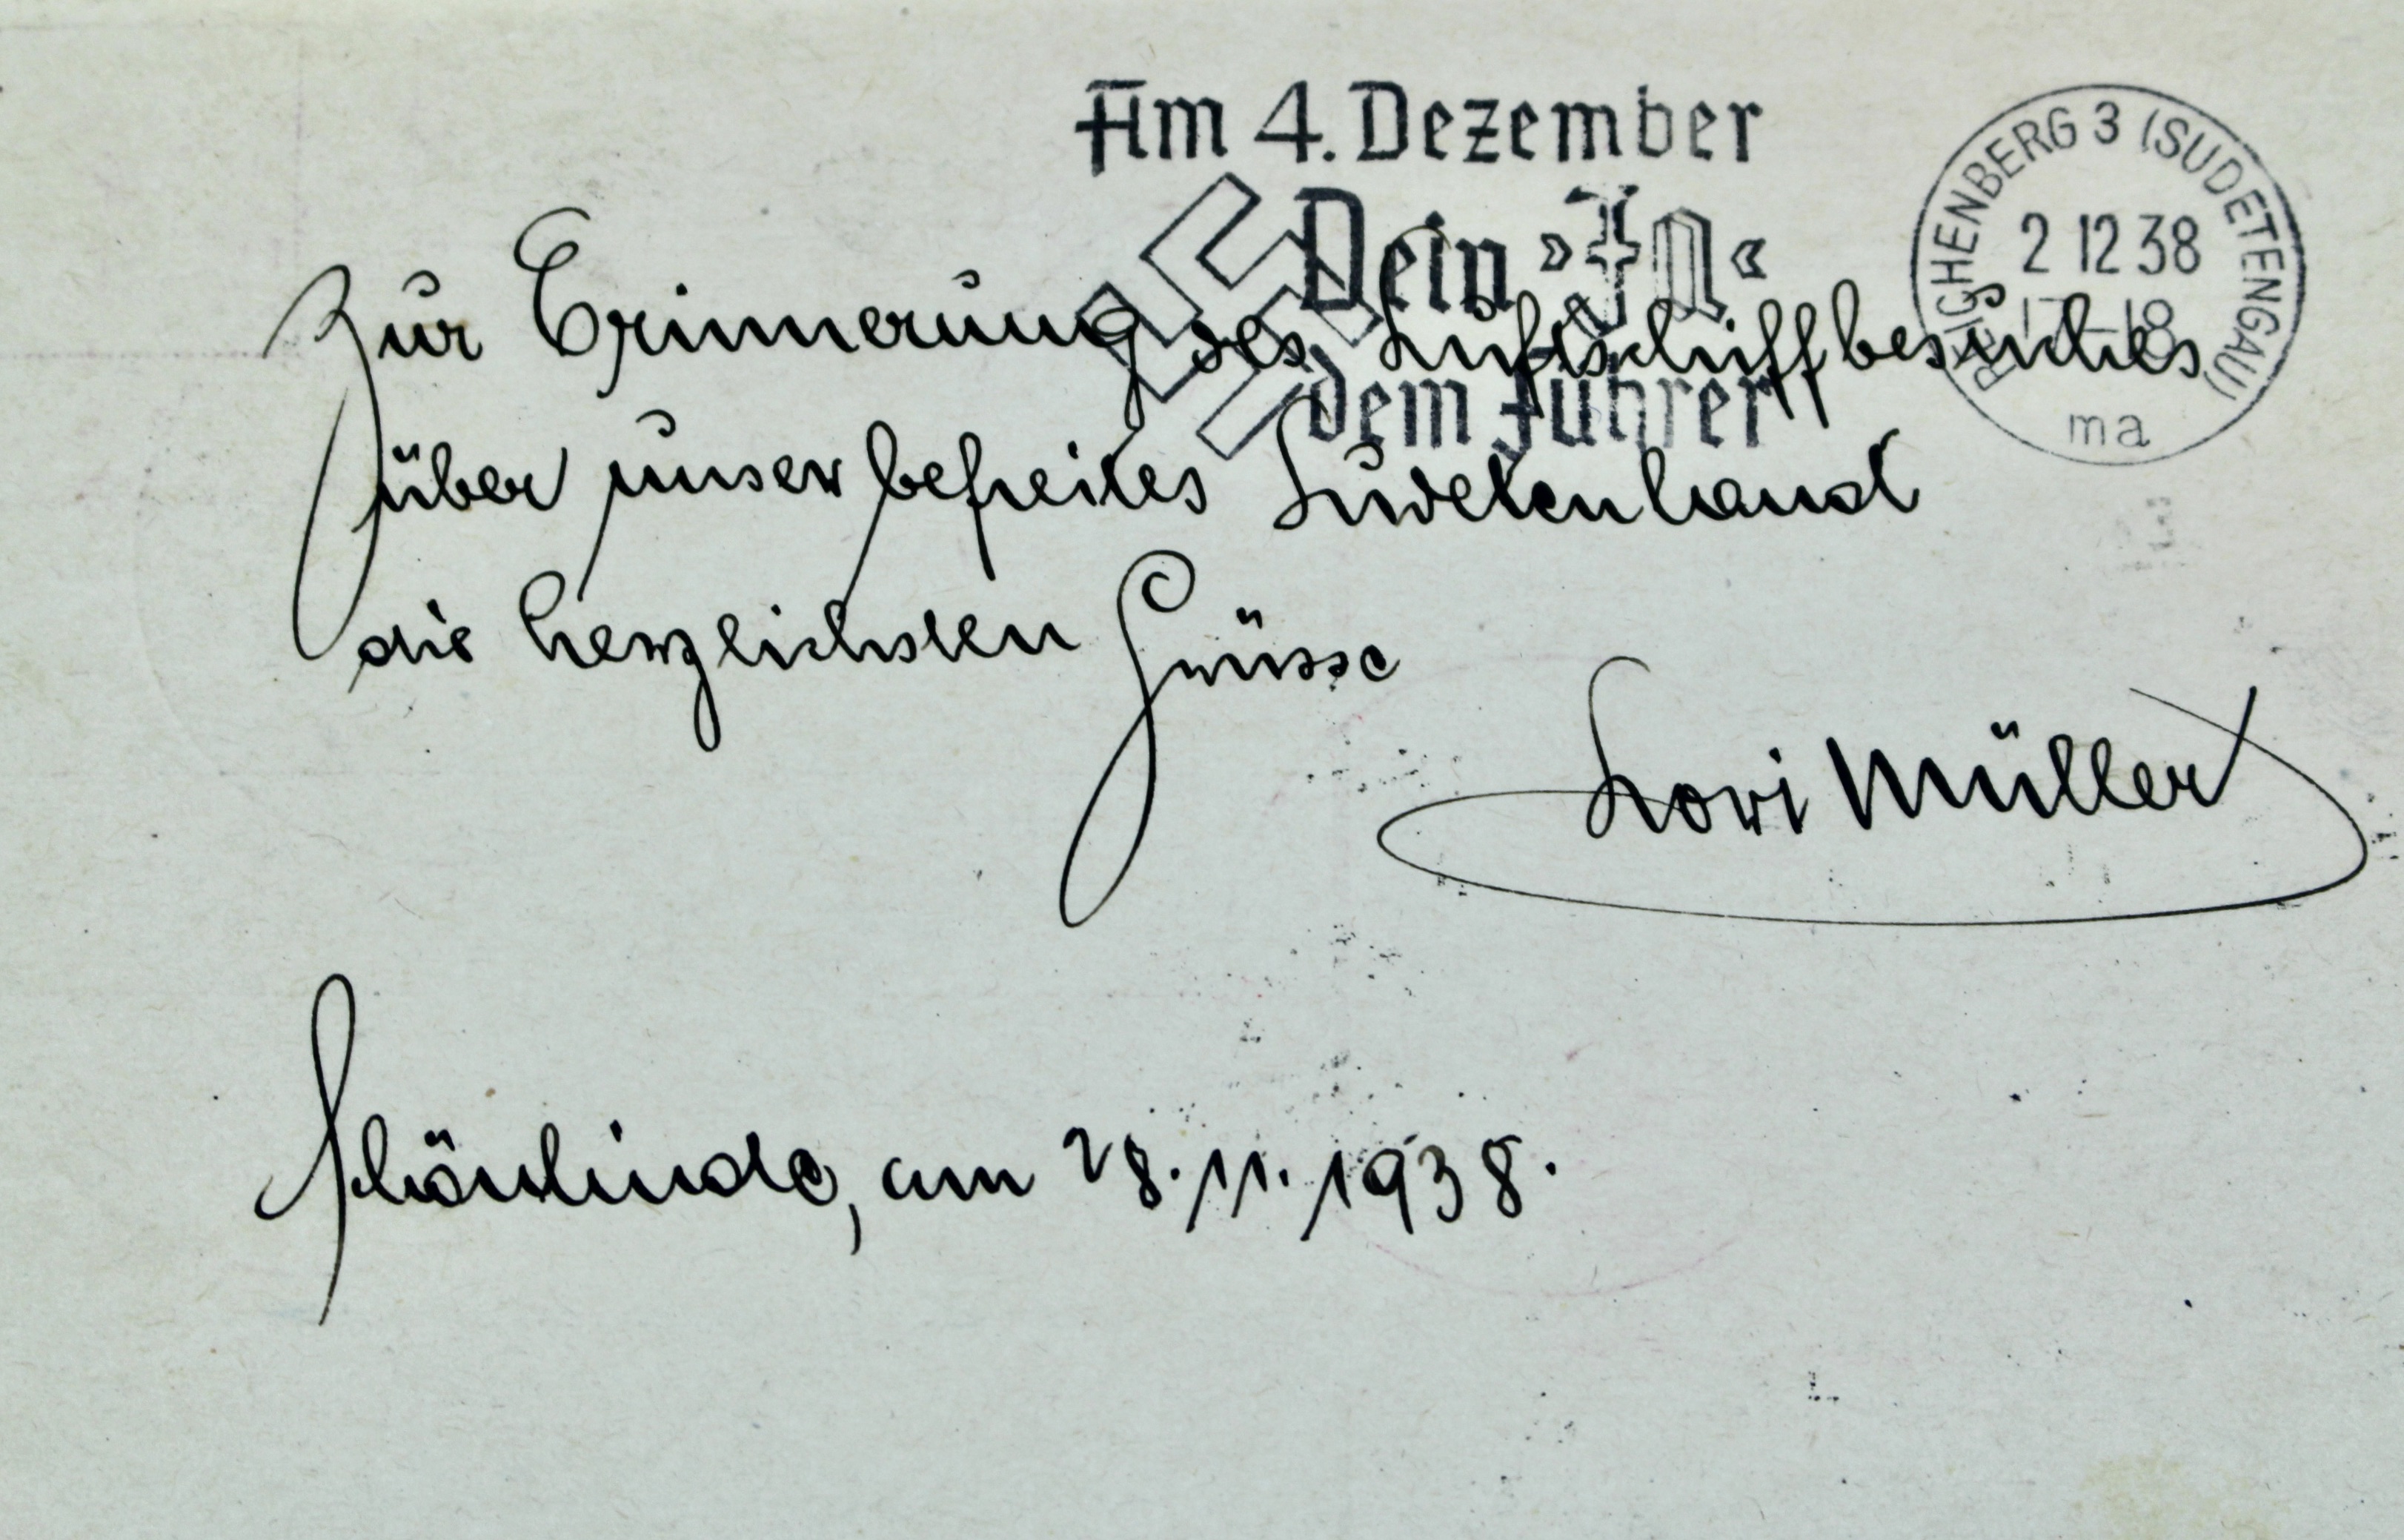 Am 4. Dezember
Dein »Ja«
dem Führer
REICHENBERG 3 (SUDETENGAU)
2 12 38
17-18
ma
Zur Erinnerung des Luftschiffbesuches
über unser befreites Sudetenland
die herzlichsten Grüsse
Lori Müller
Schönlinde, am 28.11.1938.